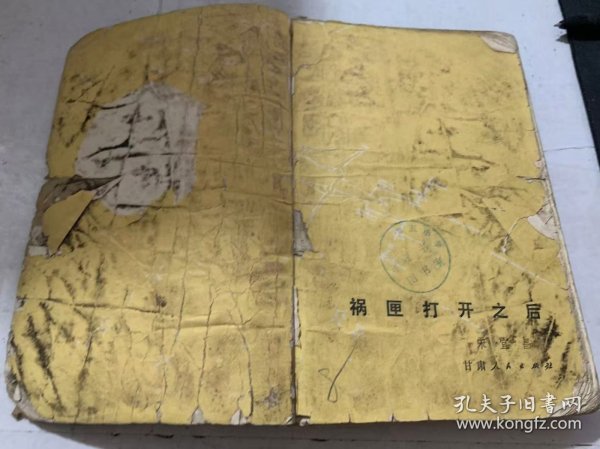 祸匣打开之后
甘肃人民出版社
8
孔夫子旧书网
www.kongfz.com